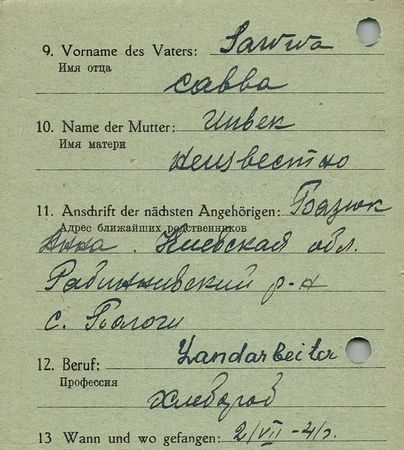 9. Vorname des Vaters: Sawwa
Имя отца
савва
10. Name der Mutter:
Имя матери
неизвестно
11. Anschrift der nächsten Angehörigen:
Адрес ближайших родственников
Анна. Киевская обл.
р-н
с.
12. Beruf: Landarbeiter
Профессия
хлебороб
13 Wann und wo gefangen: 2/VII-41г.